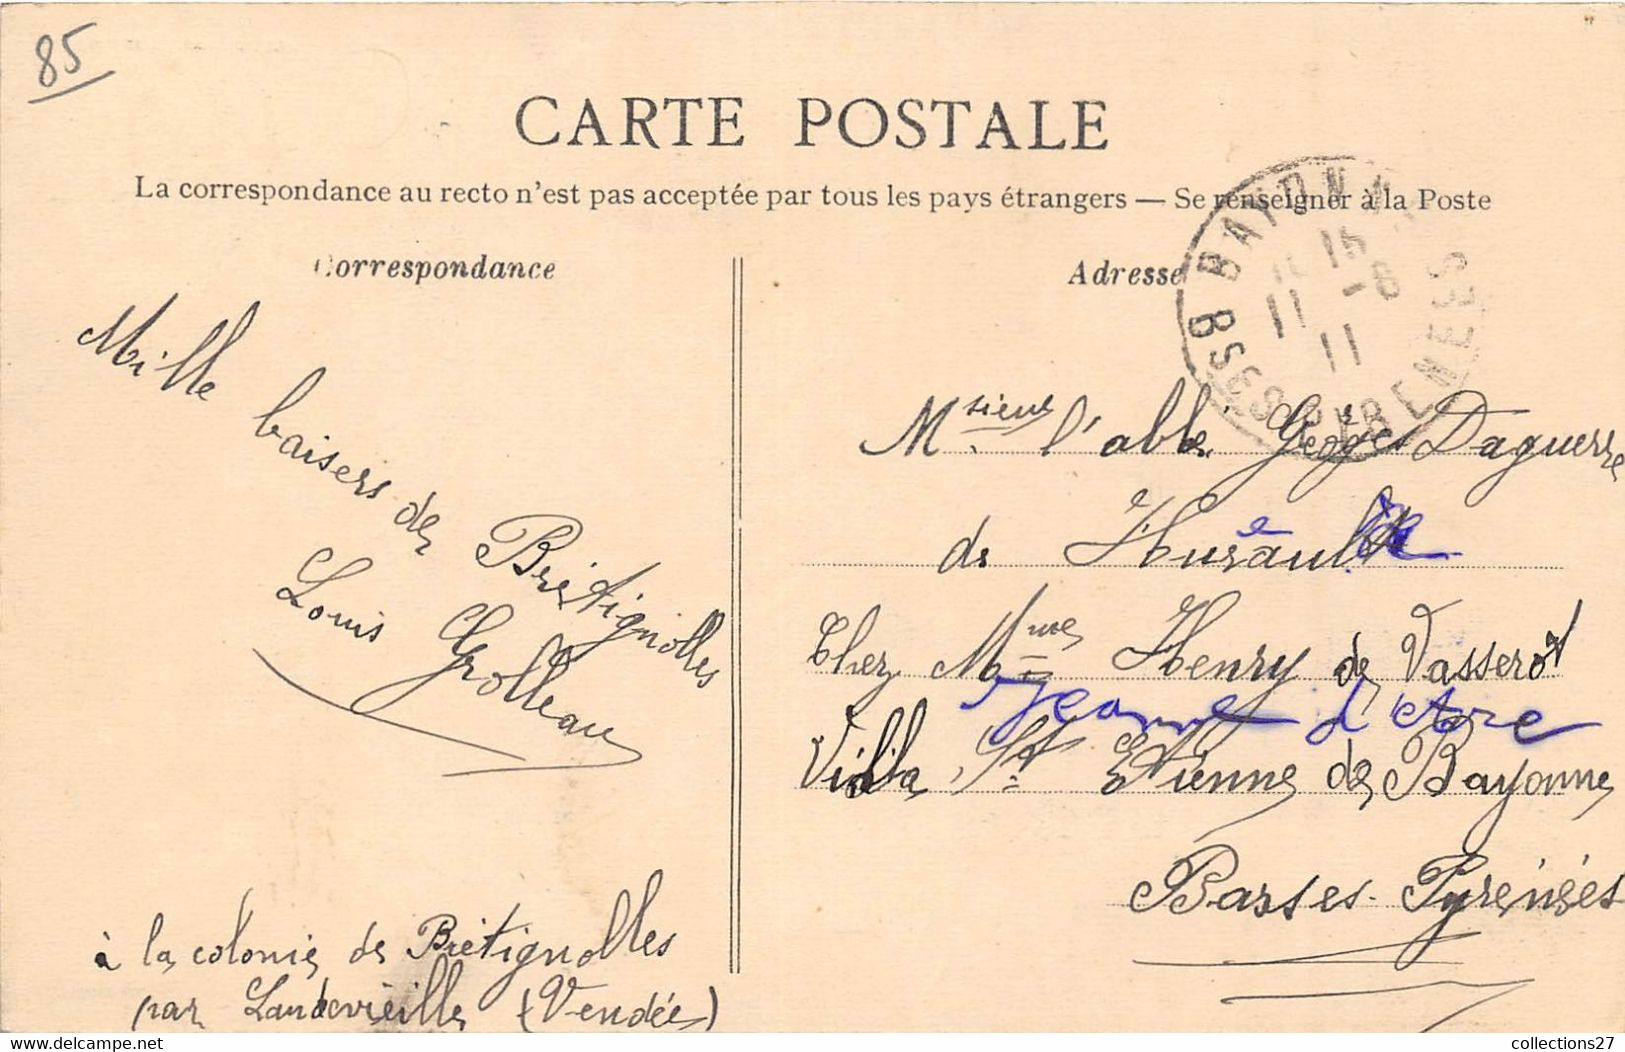 85
CARTE POSTALE
La correspondance au recto n'est pas acceptée par tous les pays étrangers — Se renseigner à la Poste
Correspondance
Adresse
BAYONNE
11 -8
11
BSES PYRENEES
Mille baisers de Brétignolles
Louis Grolleau
à la colonie de Brétignolles
par Landevieille (Vendée)
Msieur l'abbé Georges Daguerre
de
Chez Mme Henry de Vasserot
Jeanne d'Arc
Villa St Etienne de Bayonne
Basses-Pyrénées
www.delcampe.net
collections27